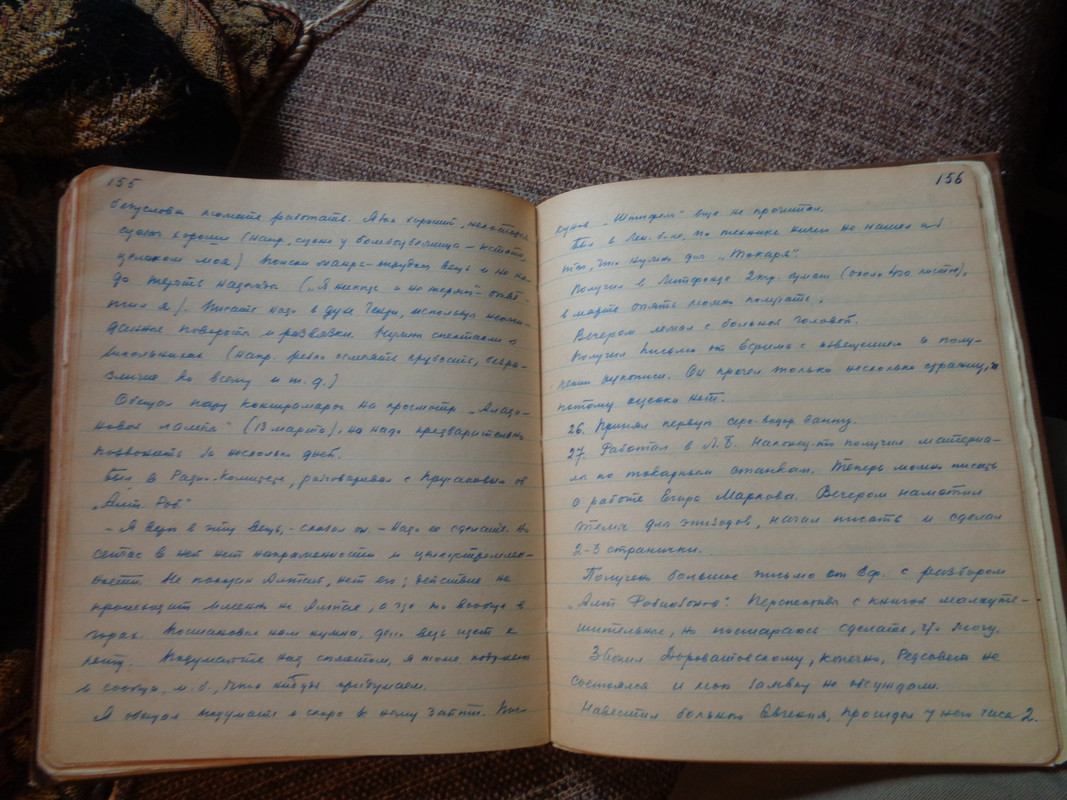 155
безусловно сможете работать. Язык хороший, некоторые
сцены хороши (напр. сцена у бомбоубежища – кстати,
целиком моя). Поиски жанра – трудная вещь и не на-
до терять надежды („Я никогда и не теряю“ – отве-
тил я). Писать надо в духе Генри, используя неожи-
данные повороты и развязки. Нужны спектакли о
школьниках (напр. резко осмеять грубость, безра-
зличие ко всему и т.д.)
Обещал пару контрамарок на просмотр „Алади-
новой лампы“ (13 марта), но надо предварительно
позвонить за несколько дней.
Был в Радио-Комитете, разговаривал с об
„Алт. Роб“
– Я верю в эту вещь, – сказал он. – Надо ее сделать. Но
сейчас в ней нет напряженности и целеустремлен-
ности. Не показан Алтай, нет его; действие не
происходит именно на Алтае, а где то вообще в
горах. Постановка нам нужна, дело ведь идет к
лету. Подумайте над сюжетом, я тоже подумаю
и сообща, м.б., что нибудь придумаем.
Я обещал подумать и скоро к нему зайти. Пос-
156
еще не прочитал.
Был в Лен. б-ке, по технике ничего не нашел из
того, что нужно для „Токаря“.
Получил в Литфонде 2 кгр. бумаги (около 400 листов),
в марте опять можно получить.
Вечером лежал с больной головой.
Получил письмо от с извещением о полу-
чении рукописи. Он прочел только несколько страниц, и
потому оценки нет.
26. Принял первую серо-водор. ванну.
27. Работал в Л.Б. Наконец-то получил материа-
лы по токарным станкам. Теперь можно писать
о работе Егора Маркова. Вечером наметил
темы для эпизодов, начал писать и сделал
2-3 странички.
Получено большое письмо от Еф. с разбором
„Алт Робинзонов“. Перспективы с книгой малоуте-
шительные, но постараюсь сделать, что могу.
Звонил Дороватовскому, конечно, Редсовет не
состоялся и мою заявку не обсуждали.
Навестил больного Евгения, просидел у него часа 2.